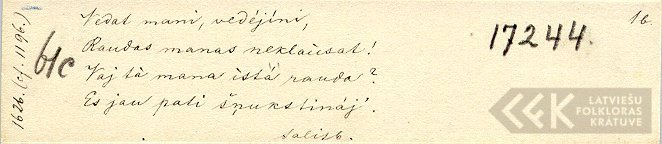 1626. (cf. 1196.)
61c
Vedat mani, vedėjini,
Raudas manas neklaùsat!
Vaj tà mana ìstà rauda?
Es jau pati šņukstináj'.
Salisb.
17244.
16.
LATVIEŠU
FOLKLORAS
KRATUVE